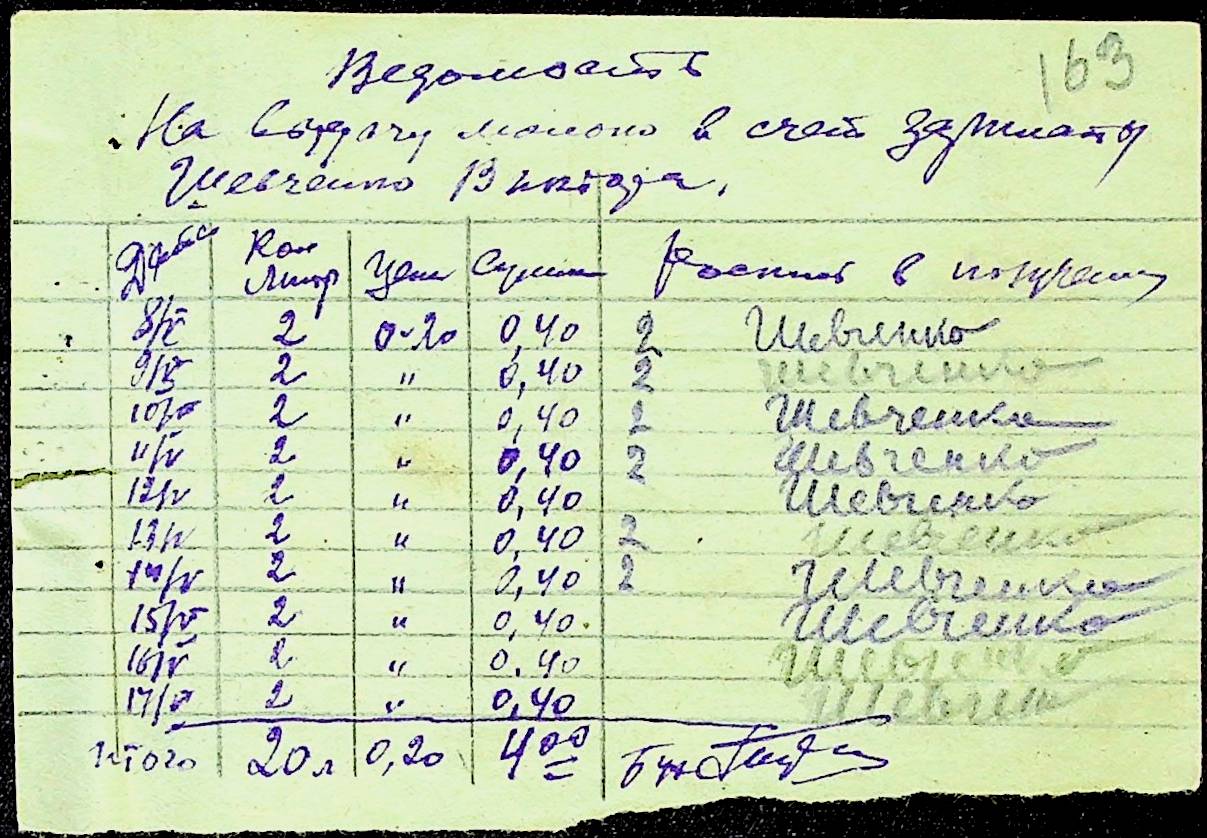 163
Ведомость
На выдачу молоко в счет зарплаты
Шевченко Виктора.
Дата Кол Литр Цена Сумма Роспись в получении
8/V 2 0-20 0,40 2 Шевченко
9/V 2 " 0,40 2 Шевченко
10/V 2 " 0,40 2 Шевченко
11/V 2 " 0,40 2 Шевченко
12/V 2 " 0,40 Шевченко
13/V 2 " 0,40 2 Шевченко
14/V 2 " 0,40 2 Шевченко
15/V 2 " 0,40 Шевченко
16/V 2 " 0,40 Шевченко
17/V 2 " 0,40 Шевчен
Итого 20л 0,20 4 00 Бух